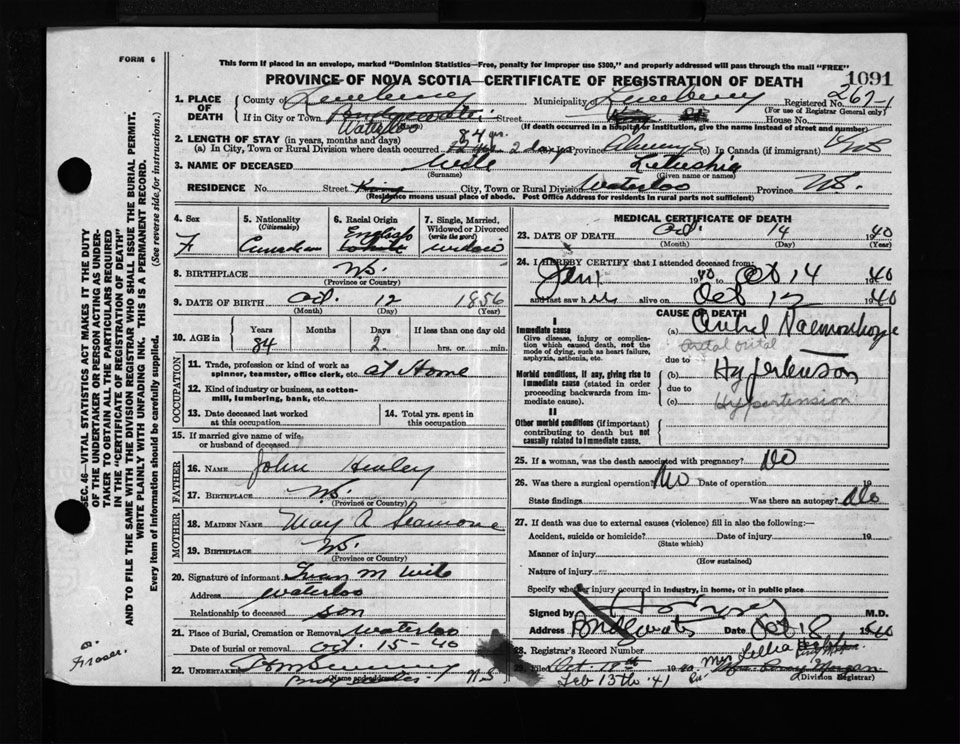 FORM 6
This form if placed in an envelope, marked "Dominion Statistics—Free, penalty for improper use $300," and properly addressed will pass through the mail "FREE"
PROVINCE OF NOVA SCOTIA—CERTIFICATE OF REGISTRATION OF DEATH
1091
1. PLACE OF DEATH
County of Lunenburg Municipality Lunenburg Registered No. 267-1
(For use of Registrar General only)
If in City or Town Bridgewater Street King St House No.
Waterloo (If death occurred in a hospital or institution, give the name instead of street and number)
2. LENGTH OF STAY (in years, months and days) 84 yrs.
(a) In City, Town or Rural Division where death occurred 2 days Province Always (c) In Canada (if immigrant)
3. NAME OF DECEASED Wile
(Surname) (Given name or names)
RESIDENCE No. Street King City, Town or Rural Division Waterloo Province N.S.
(Residence means usual place of abode. Post Office Address for residents in rural parts not sufficient)
4. Sex
F
5. Nationality
(Citizenship)
Canadian
6. Racial Origin
English
7. Single, Married, Widowed or Divorced
(write the word)
8. BIRTHPLACE N.S.
(Province or Country)
9. DATE OF BIRTH Oct. 12 1856
(Month) (Day) (Year)
10. AGE in
Years Months Days If less than one day old
84 2 hrs. or min.
OCCUPATION
11. Trade, profession or kind of work as spinner, teamster, office clerk, etc. at Home
12. Kind of industry or business, as cotton-mill, lumbering, bank, etc.
13. Date deceased last worked at this occupation
14. Total yrs. spent in this occupation
15. If married give name of wife or husband of deceased
FATHER
16. NAME John Henley
17. BIRTHPLACE N.S.
(Province or Country)
MOTHER
18. MAIDEN NAME May A
19. BIRTHPLACE N.S.
(Province or Country)
20. Signature of informant M Wile
Address Waterloo
Relationship to deceased son
21. Place of Burial, Cremation or Removal Waterloo
Date of burial or removal Oct. 15-40
22. UNDERTAKER
(Name and address)
N.S
MEDICAL CERTIFICATE OF DEATH
23. DATE OF DEATH Oct. 14 1940
(Month) (Day) (Year)
24. I HEREBY CERTIFY that I attended deceased from:
Jan 1 1940 to Oct 14 1940
and last saw her alive on Oct 12 1940
CAUSE OF DEATH
I
Immediate cause
Give disease, injury or complication which caused death, not the mode of dying, such as heart failure, asphyxia, asthenia, etc.
(a)
due to
Morbid conditions, if any, giving rise to immediate cause (stated in order proceeding backwards from immediate cause).
(b) Hypertension
due to
(c) Hypertension
II
Other morbid conditions (if important) contributing to death but not causally related to immediate cause.
25. If a woman, was the death associated with pregnancy? No
26. Was there a surgical operation? No Date of operation
State findings Was there an autopsy? No
27. If death was due to external causes (violence) fill in also the following:—
Accident, suicide or homicide? Date of injury 19
(State which)
Manner of injury
(How sustained)
Nature of injury
Specify whether injury occurred in Industry, in home, or in public place
Signed by M.D.
Address Bridgewater Date Oct 18 1940
28. Registrar's Record Number
29. Filed Oct. 18th 1940 Mrs
Feb 13th '41
(Division Registrar)
SEC. 46—VITAL STATISTICS ACT MAKES IT THE DUTY
OF THE UNDERTAKER OR PERSON ACTING AS UNDER-
TAKER TO OBTAIN ALL THE PARTICULARS REQUIRED
IN THE "CERTIFICATE OF REGISTRATION OF DEATH"
AND TO FILE THE SAME WITH THE DIVISION REGISTRAR WHO SHALL ISSUE THE BURIAL PERMIT.
WRITE PLAINLY WITH UNFADING INK. THIS IS A PERMANENT RECORD.
Every item of Information should be carefully supplied. (See reverse side for instructions.)
Fraser.